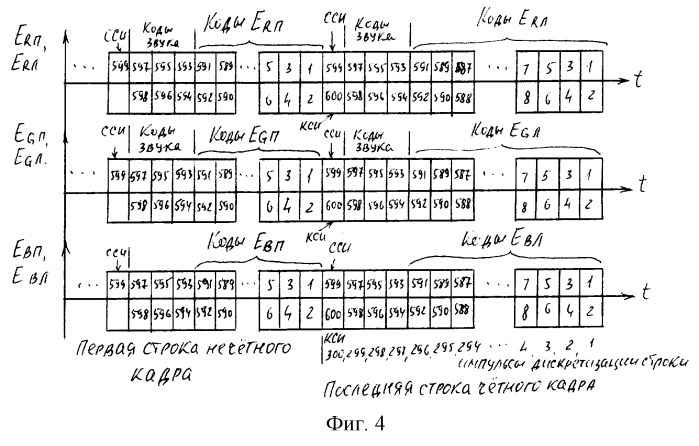 Коды ERП Коды ERЛ
ERП, ERЛ ССИ Коды звука ССИ Коды звука
... 599 597 595 593 591 589 ... 5 3 1 599 597 595 593 591 589 587 ... 7 5 3 1
t
598 596 594 592 590 6 4 2 600 598 596 594 592 590 588 8 6 4 2
КСИ
EGП, EGЛ. ССИ Коды звука Коды EGП ССИ Коды звука Коды EGЛ
... 599 597 595 593 591 589 ... 5 3 1 599 597 595 593 591 589 587 ... 7 5 3 1
t
598 596 594 592 590 6 4 2 600 598 596 594 592 590 588 8 6 4 2
КСИ
EВП, EВЛ ССИ Коды EВП ССИ Коды EВЛ
... 599 597 595 593 591 589 ... 5 3 1 599 597 595 593 591 589 587 ... 7 5 3 1
t
598 596 594 592 590 6 4 2 600 598 596 594 592 590 588 8 6 4 2
КСИ
300, 299, 298, 297, 296, 295, 294 ... 4 3 2 1
импульсы дискретизации строки
Первая строка нечётного кадра
Последняя строка чётного кадра
Фиг. 4